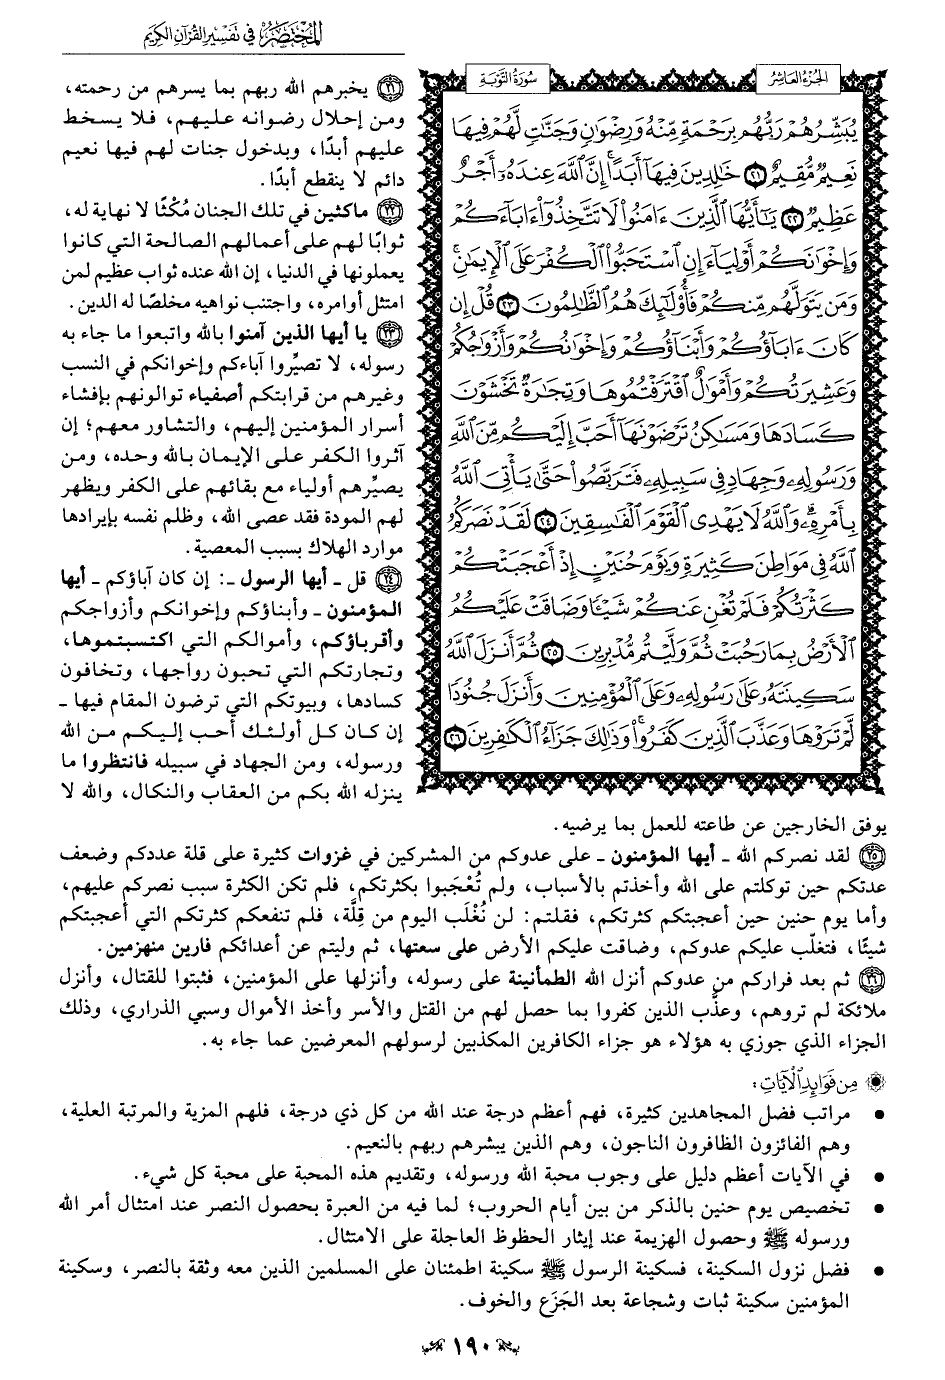 المختصر في تفسير القرآن الكريم
الجزء العاشر
سورة التوبة
يُبَشِّرُهُمْ رَبُّهُم بِرَحْمَةٍ مِّنْهُ وَرِضْوَانٍ وَجَنَّاتٍ لَّهُمْ فِيهَا
نَعِيمٌ مُّقِيمٌ ٢١ خَالِدِينَ فِيهَا أَبَدًا إِنَّ اللَّهَ عِندَهُ أَجْرٌ
عَظِيمٌ ٢٢ يَا أَيُّهَا الَّذِينَ ءَامَنُوا لَا تَتَّخِذُوا ءَابَاءَكُمْ
وَإِخْوَانَكُمْ أَوْلِيَاءَ إِنِ اسْتَحَبُّوا الْكُفْرَ عَلَى الْإِيمَانِ
وَمَن يَتَوَلَّهُم مِّنكُمْ فَأُولَٰئِكَ هُمُ الظَّالِمُونَ ٢٣ قُلْ إِن
كَانَ ءَابَاؤُكُمْ وَأَبْنَاؤُكُمْ وَإِخْوَانُكُمْ وَأَزْوَاجُكُمْ
وَعَشِيرَتُكُمْ وَأَمْوَالٌ اقْتَرَفْتُمُوهَا وَتِجَارَةٌ تَخْشَوْنَ
كَسَادَهَا وَمَسَاكِنُ تَرْضَوْنَهَا أَحَبَّ إِلَيْكُم مِّنَ اللَّهِ
وَرَسُولِهِ وَجِهَادٍ فِي سَبِيلِهِ فَتَرَبَّصُوا حَتَّىٰ يَأْتِيَ اللَّهُ
بِأَمْرِهِ وَاللَّهُ لَا يَهْدِي الْقَوْمَ الْفَاسِقِينَ ٢٤ لَقَدْ نَصَرَكُمُ
اللَّهُ فِي مَوَاطِنَ كَثِيرَةٍ وَيَوْمَ حُنَيْنٍ إِذْ أَعْجَبَتْكُمْ
كَثْرَتُكُمْ فَلَمْ تُغْنِ عَنكُمْ شَيْئًا وَضَاقَتْ عَلَيْكُمُ
الْأَرْضُ بِمَا رَحُبَتْ ثُمَّ وَلَّيْتُم مُّدْبِرِينَ ٢٥ ثُمَّ أَنزَلَ اللَّهُ
سَكِينَتَهُ عَلَىٰ رَسُولِهِ وَعَلَى الْمُؤْمِنِينَ وَأَنزَلَ جُنُودًا
لَّمْ تَرَوْهَا وَعَذَّبَ الَّذِينَ كَفَرُوا وَذَٰلِكَ جَزَاءُ الْكَافِرِينَ ٢٦
٢١ يخبرهم الله ربهم بما يسرهم من رحمته،
ومن إحلال رضوانه عليهم، فلا يسخط
عليهم أبدًا، وبدخول جنات لهم فيها نعيم
دائم لا ينقطع أبدًا.
٢٢ ماكثين في تلك الجنان مُكْثًا لا نهاية له،
ثوابًا لهم على أعمالهم الصالحة التي كانوا
يعملونها في الدنيا، إن الله عنده ثواب عظيم لمن
امتثل أوامره، واجتنب نواهيه مخلصًا له الدين.
٢٣ يا أيها الذين آمنوا بالله واتبعوا ما جاء به
رسوله، لا تصيِّروا آباءكم وإخوانكم في النسب
وغيرهم من قرابتكم أصفياء توالونهم بإفشاء
أسرار المؤمنين إليهم، والتشاور معهم؛ إن
آثروا الكفر على الإيمان بالله وحده، ومن
يصيِّرهم أولياء مع بقائهم على الكفر ويظهر
لهم المودة فقد عصى الله، وظلم نفسه بإيرادها
موارد الهلاك بسبب المعصية.
٢٤ قل ـ أيها الرسول ـ: إن كان آباؤكم ـ أيها
المؤمنون ـ وأبناؤكم وإخوانكم وأزواجكم
وأقرباؤكم، وأموالكم التي اكتسبتموها،
وتجارتكم التي تحبون رواجها، وتخافون
كسادها، وبيوتكم التي ترضون المقام فيها ـ
إن كان كل أولئك أحب إليكم من الله
ورسوله، ومن الجهاد في سبيله فانتظروا ما
ينزله الله بكم من العقاب والنكال، والله لا
يوفق الخارجين عن طاعته للعمل بما يرضيه.
٢٥ لقد نصركم الله ـ أيها المؤمنون ـ على عدوكم من المشركين في غزوات كثيرة على قلة عددكم وضعف
عدتكم حين توكلتم على الله وأخذتم بالأسباب، ولم تُعْجَبوا بكثرتكم، فلم تكن الكثرة سبب نصركم عليهم،
وأما يوم حنين حين أعجبتكم كثرتكم، فقلتم: لن نُغْلَب اليوم من قِلَّة، فلم تنفعكم كثرتكم التي أعجبتكم
شيئًا، فتغلّب عليكم عدوكم، وضاقت عليكم الأرض على سعتها، ثم وليتم عن أعدائكم فارين منهزمين.
٢٦ ثم بعد فراركم من عدوكم أنزل الله الطمأنينة على رسوله، وأنزلها على المؤمنين، فثبتوا للقتال، وأنزل
ملائكة لم تروهم، وعذَّب الذين كفروا بما حصل لهم من القتل والأسر وأخذ الأموال وسبي الذراري، وذلك
الجزاء الذي جوزي به هؤلاء هو جزاء الكافرين المكذبين لرسولهم المعرضين عما جاء به.
من فوائد الآيات:
• مراتب فضل المجاهدين كثيرة، فهم أعظم درجة عند الله من كل ذي درجة، فلهم المزية والمرتبة العلية،
وهم الفائزون الظافرون الناجون، وهم الذين يبشرهم ربهم بالنعيم.
• في الآيات أعظم دليل على وجوب محبة الله ورسوله، وتقديم هذه المحبة على محبة كل شيء.
• تخصيص يوم حنين بالذكر من بين أيام الحروب؛ لما فيه من العبرة بحصول النصر عند امتثال أمر الله
ورسوله ﷺ وحصول الهزيمة عند إيثار الحظوظ العاجلة على الامتثال.
• فضل نزول السكينة، فسكينة الرسول ﷺ سكينة اطمئنان على المسلمين الذين معه وثقة بالنصر، وسكينة
المؤمنين سكينة ثبات وشجاعة بعد الجَزَع والخوف.
١٩٠